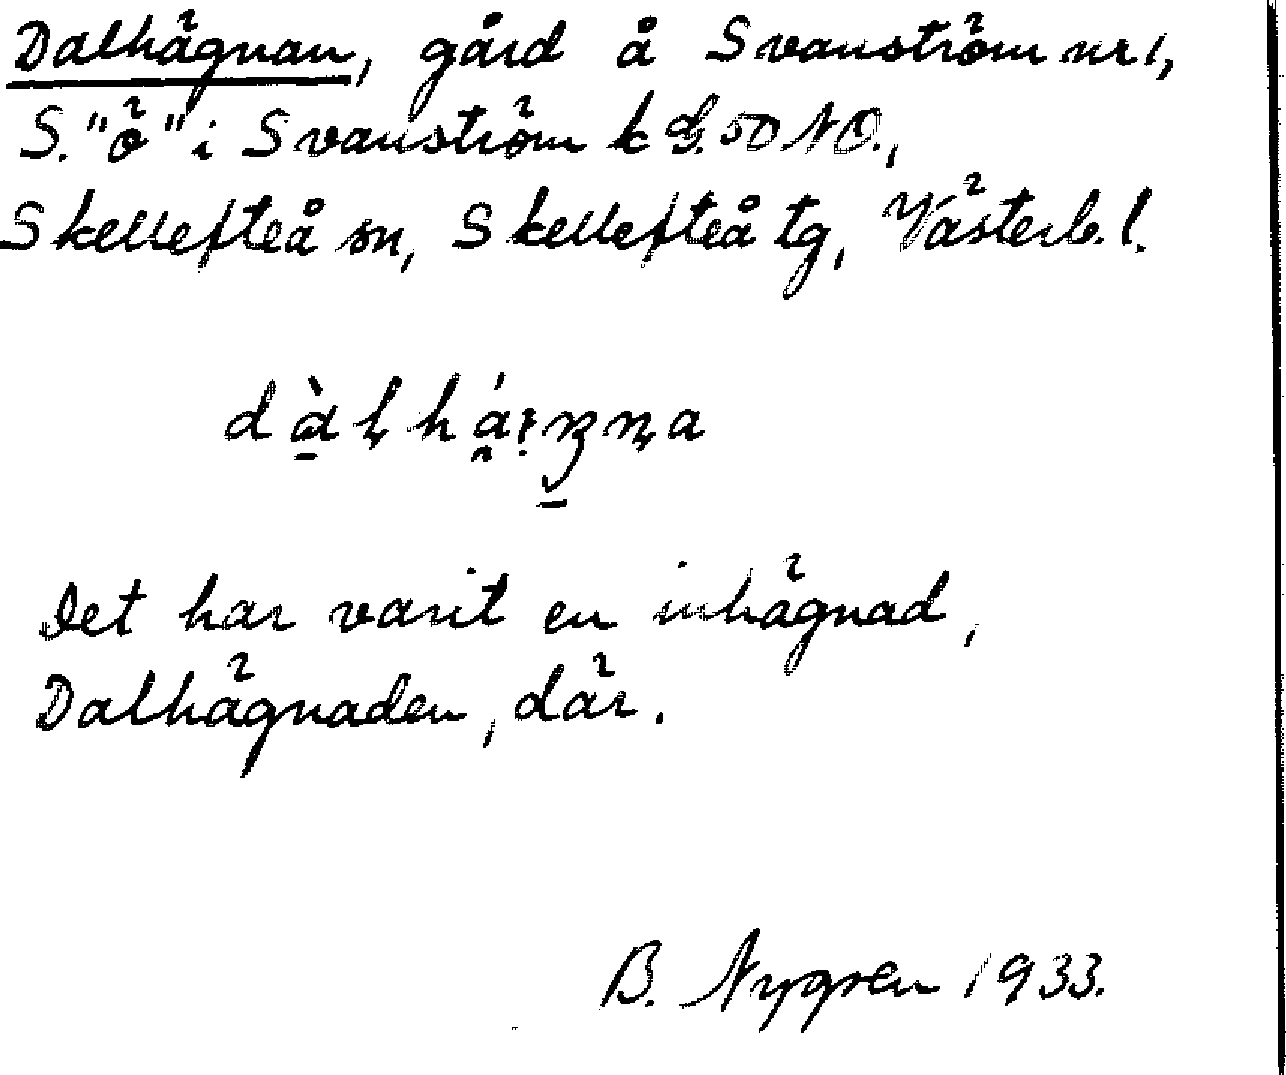 Dalhägnan, gård å Svanström nr 1,
S. "ö" i Svanström k G. 50 NO.,
Skellefteå sn, Skellefteå tg, Västerb. l.
Det har varit en inhägnad,
Dalhägnaden, där.
B. Nygren 1933.